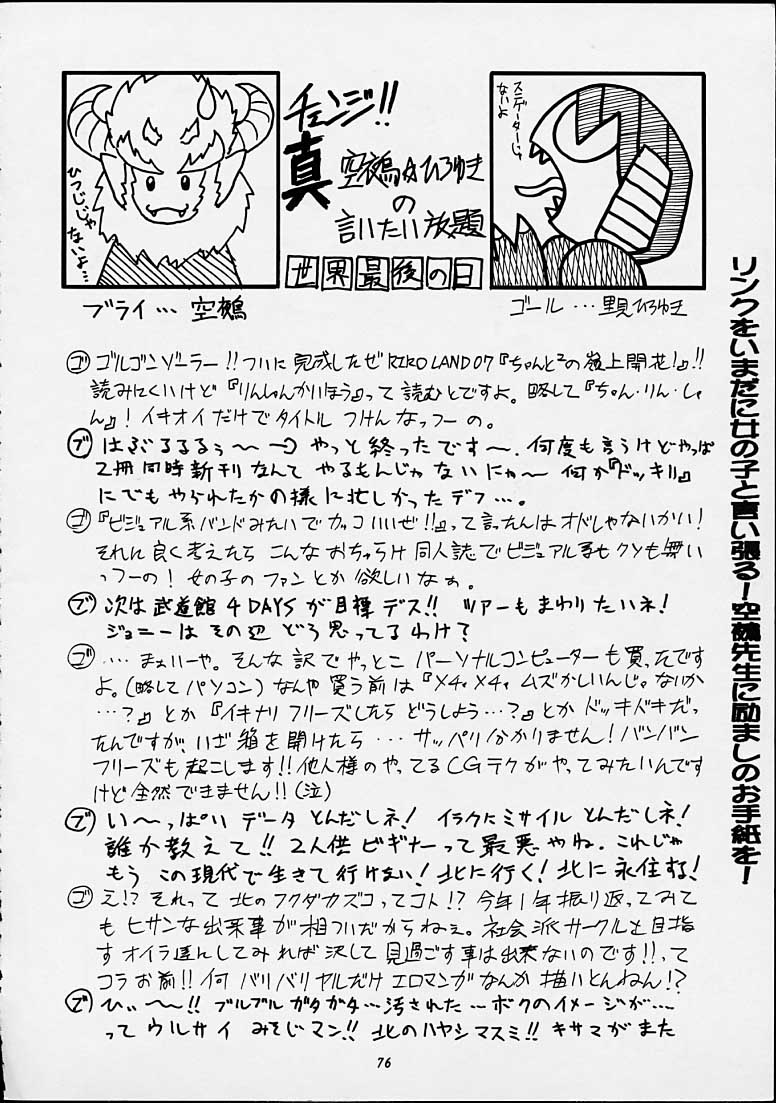 ひつじじゃ
ないよ…
チェンジ!!
真
空鵺☆ひろゆき
の
言いたい放題
世界最後の日
ステーターじゃ
ないよ
ブライ… 空鵺
ゴール …里見ひろゆき
ゴ ゴルゴンゾーラー!!ついに完成したぜRIROLAND07『ちゃんと²の嶺上開花!』!!
読みにくいけど『りんしゃんかいほう』って読むとですよ。略して『ちゃん・りん・しゃ
ん』!イキオイだけでタイトルつけんなっつーの。
ブ はぶるるるぅ〜〜 やっと終ったです〜。何度も言うけどやっぱ
2冊同時新刊なんて やるもんじゃないにゃ〜 何か『ドッキリ』
にでもやられたかの様に忙しかったデフ…。
ゴ 『ビジュアル系バンドみたいでカッコいいぜ!!』って言ったんはオドじゃないかい!
それに良く考えたら こんなおちゃらけ同人誌でビジュアル系もクソも無い
っつーの!女の子のファンとか欲しいなぁ。
ブ 次は武道館4DAYSが目標デス!! ツアーもまわりたいネ!
ジョニーは その辺 どう思ってるわけ?
ゴ …まぁいーや。そんな訳でやっとこ パーソナルコンピューターも買ったです
よ。(略してパソコン)なんや買う前は『メチャメチャムズかしいんじゃないか
…?』とか『イキナリフリーズしたら どうしよう…?』とかドッキドキだっ
たんですが、いざ箱を開けたら…サッパリ分かりません!バンバン
フリーズも起こします!!他人様のやってるCGテクがやってみたいんです
けど全然できません!!(泣)
ブ い〜っぱい データ とんだしネ! イラクにミサイル とんだしネ!
誰か教えて!! 2人供ビギナーって最悪やね。これじゃ
もう この現代で生きて行けない!北に行く!北に永住する!
ゴ え!?それって北のフクダカズコってコト!?今年1年振り返ってみて
も ヒサンな出来事が相ついだからねぇ。社会派サークルを目指
すオイラ達んしてみれば決して見過ごす事は出来ないのです!!って
コラお前!!何 バリバリヤルだけエロマンガなんか描いとんねん!?
ブ ひぃ〜〜!! ブルブルガタガタ…汚された…ボクのイメージが…
って ウルサイ みそじマン!!北のハヤシマスミ!!キサマがまた
リンクをいまだに女の子と言い張る!空鵺先生に励ましのお手紙を!
76